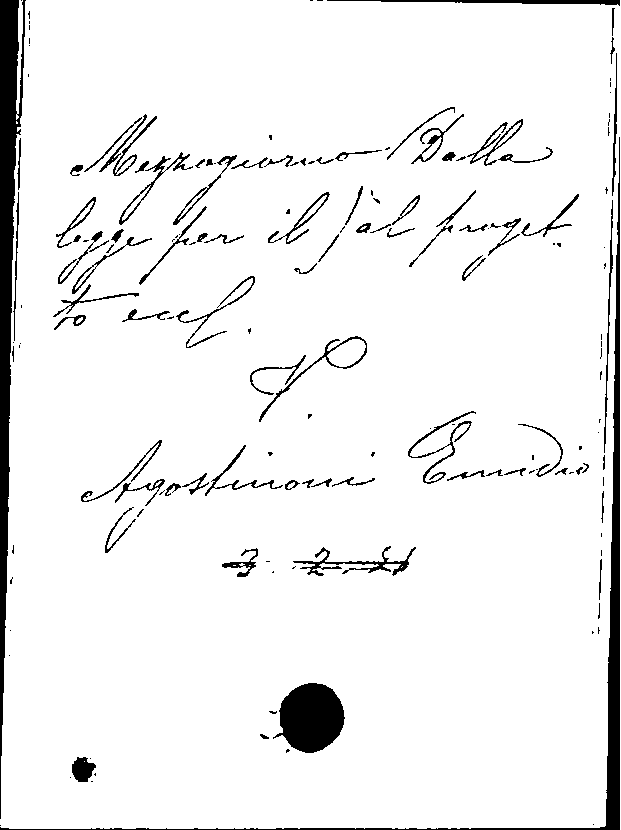 Mezzogiorno (Dalla
legge per il) al proget-
to eccl.
V.
Agostinoni Emidio